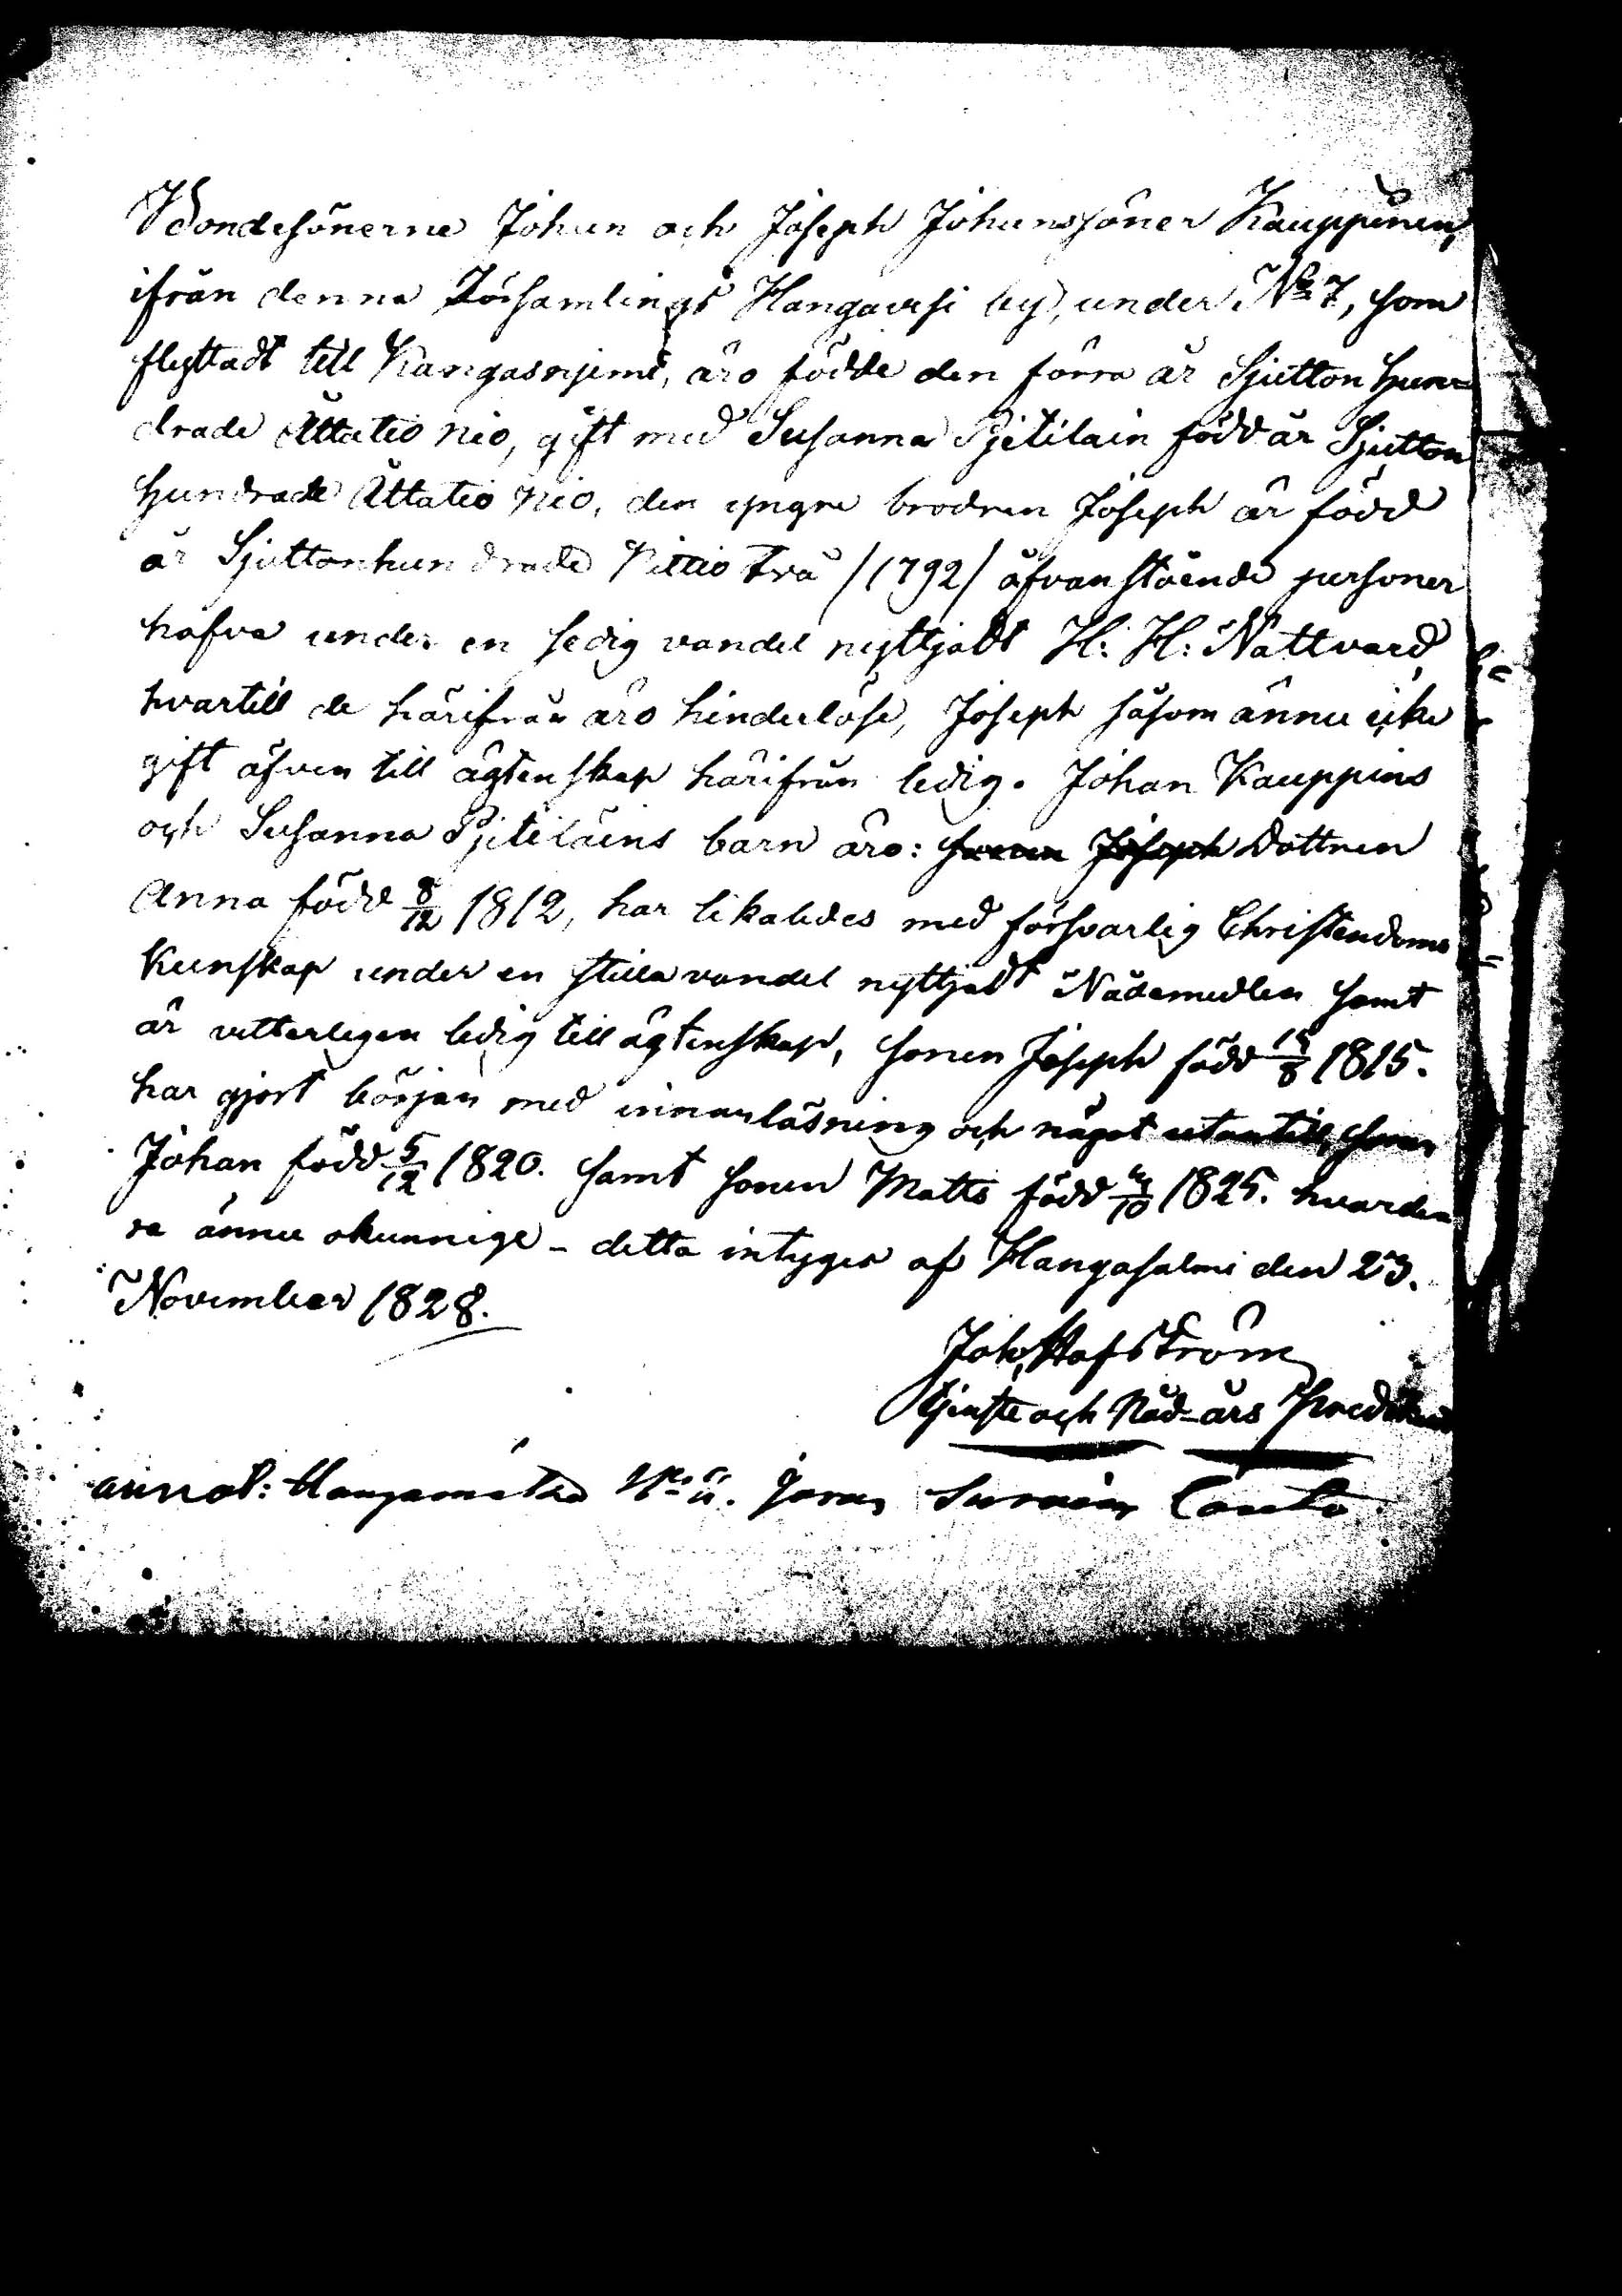 Bondesönerne Johan och Joseph Johanssöner Kauppinen,
ifrån denna Församlings Hangaersi by, under No 7, som
flyttadt till Kangasnjemi, äro födde den förra år Sjutton Hun-
drade Åttatio nio, gift med Susanna Pjetiläin född år Sjutton
Hundrade Åttatio nio, den yngre brodren Joseph är född
år Sjuttonhundrade Nittio två /1792/ åfvanstående personer
hafva under en sedig vandel nyttjadt H: H: Nattvard,
hvartill de härifrån äro hinderlöse, Joseph såsom ännu icke
gift äfven till ägtenskap härifrån ledig. Johan Kauppins
och Susanna Pjetiläins barn äro: sonen Joseph Dottren
Anna född 8/12 1812, har likaledes med försvarlig Christendoms
Kunskap under en stilla vandel nyttjadt Nådemedlen samt
är vetterligen ledig till ägtenskap, sonen Joseph född 14/8 1815.
har gjort början med innanläsning och något utantill, sonen
Johan född 5/12 1820. samt sonen Matts född 4/10 1825. hvarden-
ra ännu okunnige - detta intyges af Hangasalmi den 23.
November 1828.
Joh. Hofström
tjenste och Nåd-års Predikant
annot: